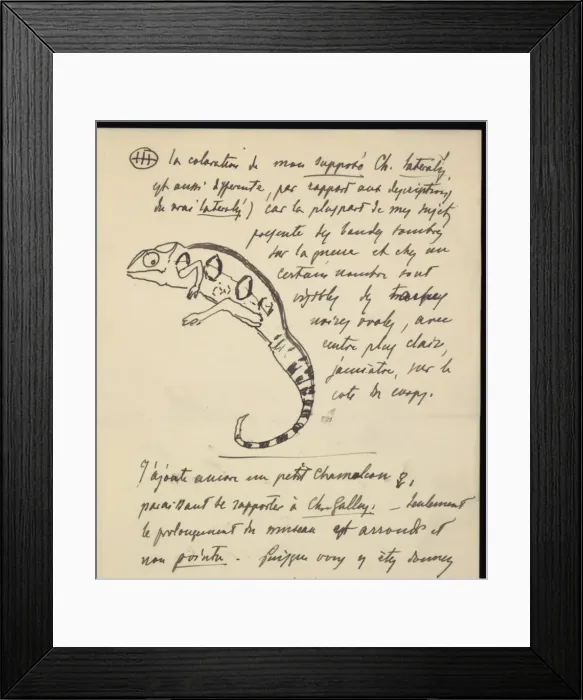 La coloration de mon supposé Ch. lateralis,
est aussi differente, par rapport aux descriptions
du vrai lateralis) car la pluspart de mes sujets
presente des bandes sombres
sur la queue et chez un
certain nombre sont
visibles des taches
noires ovales, avec
centre plus clair,
jaunâtre, sur le
coté du corps.
J'ajoute encore un petit Chamaeleon ♀,
paraissant se rapporter à Ch. Gallus. — Seulement
le prolongement du museau est arrondi et
non pointu. - Puisque vous y étes